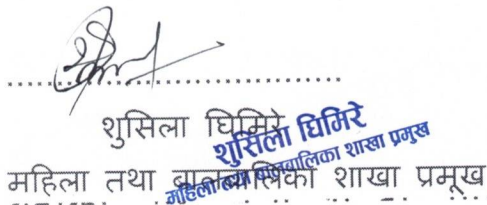 शुसिला घिमिरे
शुसिला घिमिरे
महिला तथा बालबालिका शाखा प्रमुख
महिला तथा बालबालिका शाखा प्रमूख